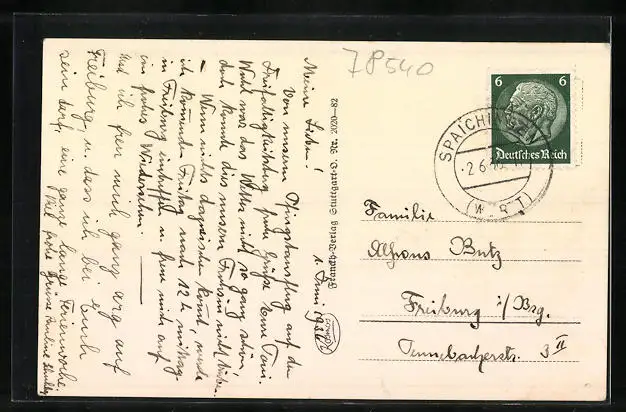 78540
6 6
Deutsches Reich
SPAICHINGEN
2.6.
(WÜRTT)
Familie
Alfons Butz
Freiburg i/Brg.
Tennebacherstr. 3 II
Brandt-Verlag Stuttgart-O. Nr. 3020—82
1. Juni 1936
Meine Lieben!
Von unserem Pfingstausflug auf den
Dreifaltigkeitsberg frohe Grüße Eure Toni.
Wohl war das Wetter nicht so ganz schön,
doch konnte dies unsern Frohsinn nicht
– Wenn nichts dazwischen kommt, werde
ich kommenden Freitag nach 12 h mittag
in Freiburg eintreffen u. freu mich auf
ein frohes Wiedersehen.
Und ich freu mich ganz arg auf
Freiburg, u. dass ich bei Euch
sein darf, eine ganze lange Ferienwoche.
Viel frohe Grüsse Pauline